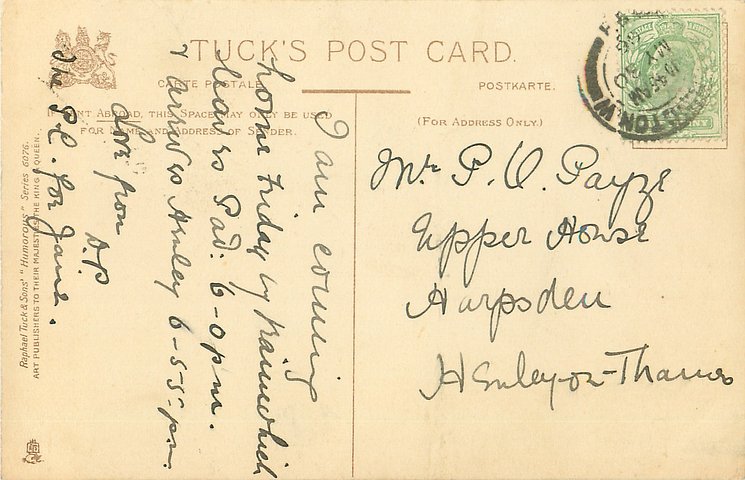 TUCK'S POST CARD.
CARTE POSTALE
POSTKARTE.
IF SENT ABROAD, THIS SPACE MAY ONLY BE USED
FOR NAME AND ADDRESS OF SENDER.
(FOR ADDRESS ONLY.)
I am coming
home Friday by train which
leaves Pad: 6-0 pm.
& arrives Henley 6-55 pm.
Love from D.P
The P.C. for Jane.
Mr P. V. Payze
Upper House
Harpsden
Henley-on-Thames
Raphael Tuck & Sons' "Humorous" Series 6076.
ART PUBLISHERS TO THEIR MAJESTIES THE KING & QUEEN.
10.45 AM
MY 20